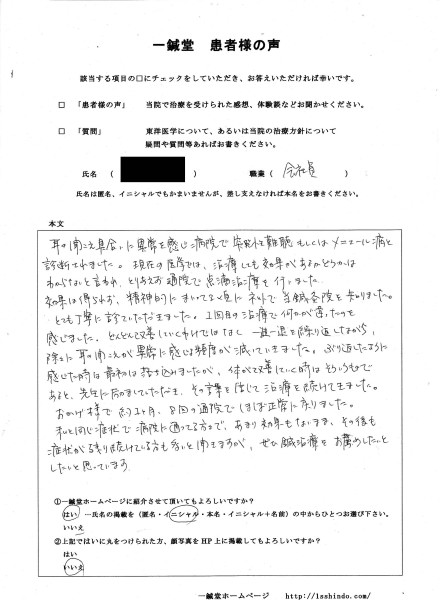 一鍼堂 患者様の声
該当する項目の□にチェックをしていただき、お答えいただければ幸いです。
□ 「患者様の声」 当院で治療を受けられた感想、体験談などお聞かせください。
□ 「質問」 東洋医学について、あるいは当院の治療方針について
疑問や質問等あればお書きください。
氏名 ( ) 職業 ( 会社員 )
氏名は匿名、イニシャルでもかまいませんが、差し支えなければ本名をお書きください。
本文
耳の聞こえ具合いに異常を感じ病院で 難聴もしくはメニエール病と
診断されました。現在の医学では、治療しても効果があるかどうかは
わからないと言われ、とりあえず通院で点滴治療を行いました。
効果は得られず、精神的にまいってる頃にネットで 鍼灸院を知りました。
とても丁寧に診ていただきました。1回目の治療で何かが違ったのを
感じました。どんどん改善していくわけではなく 一進一退を繰り返しながら、
除々に耳の聞こえが異常に感じる頻度が減っていきました。ぶり返したように
感じた時は最初は落ち込みましたが、体が改善していく時はそういうもので
あると、先生に励ましていただき、その言葉を信じて治療を続けてきました。
おかげ様で 約2ヶ月、8回の通院でほぼ正常に戻りました。
私と同じ症状で病院に通ってる方で、あまり効果もないまま、その後も
症状が残り続けている方も多いと聞きますが、ぜひ鍼治療をお薦めしたいと
したいと思っています
①一鍼堂ホームページに紹介させて頂いてもよろしいですか？
はい ―氏名の掲載を（匿名・イニシャル・本名・イニシャル＋名前）の中からひとつお選び下さい。
いいえ
②上記ではいに丸をつけられた方、顔写真をHP上に掲載してもよろしいですか？
はい
いいえ
一鍼堂ホームページ http://1sshindo.com/